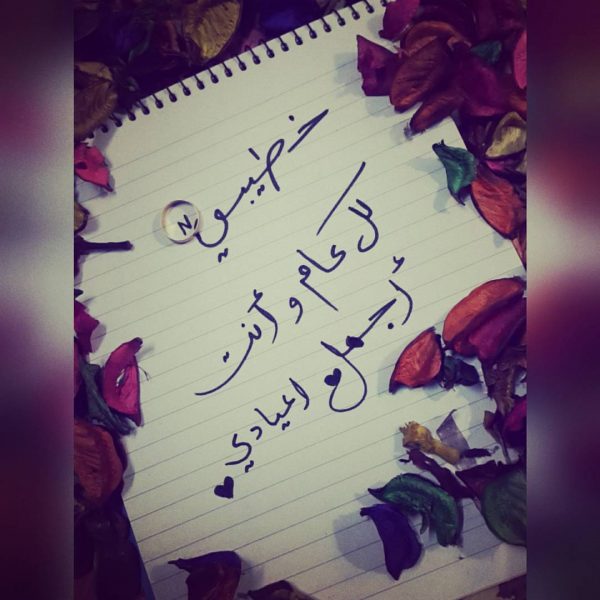 خطيبي
N
كل عام و أنت
أجمل اعيادي